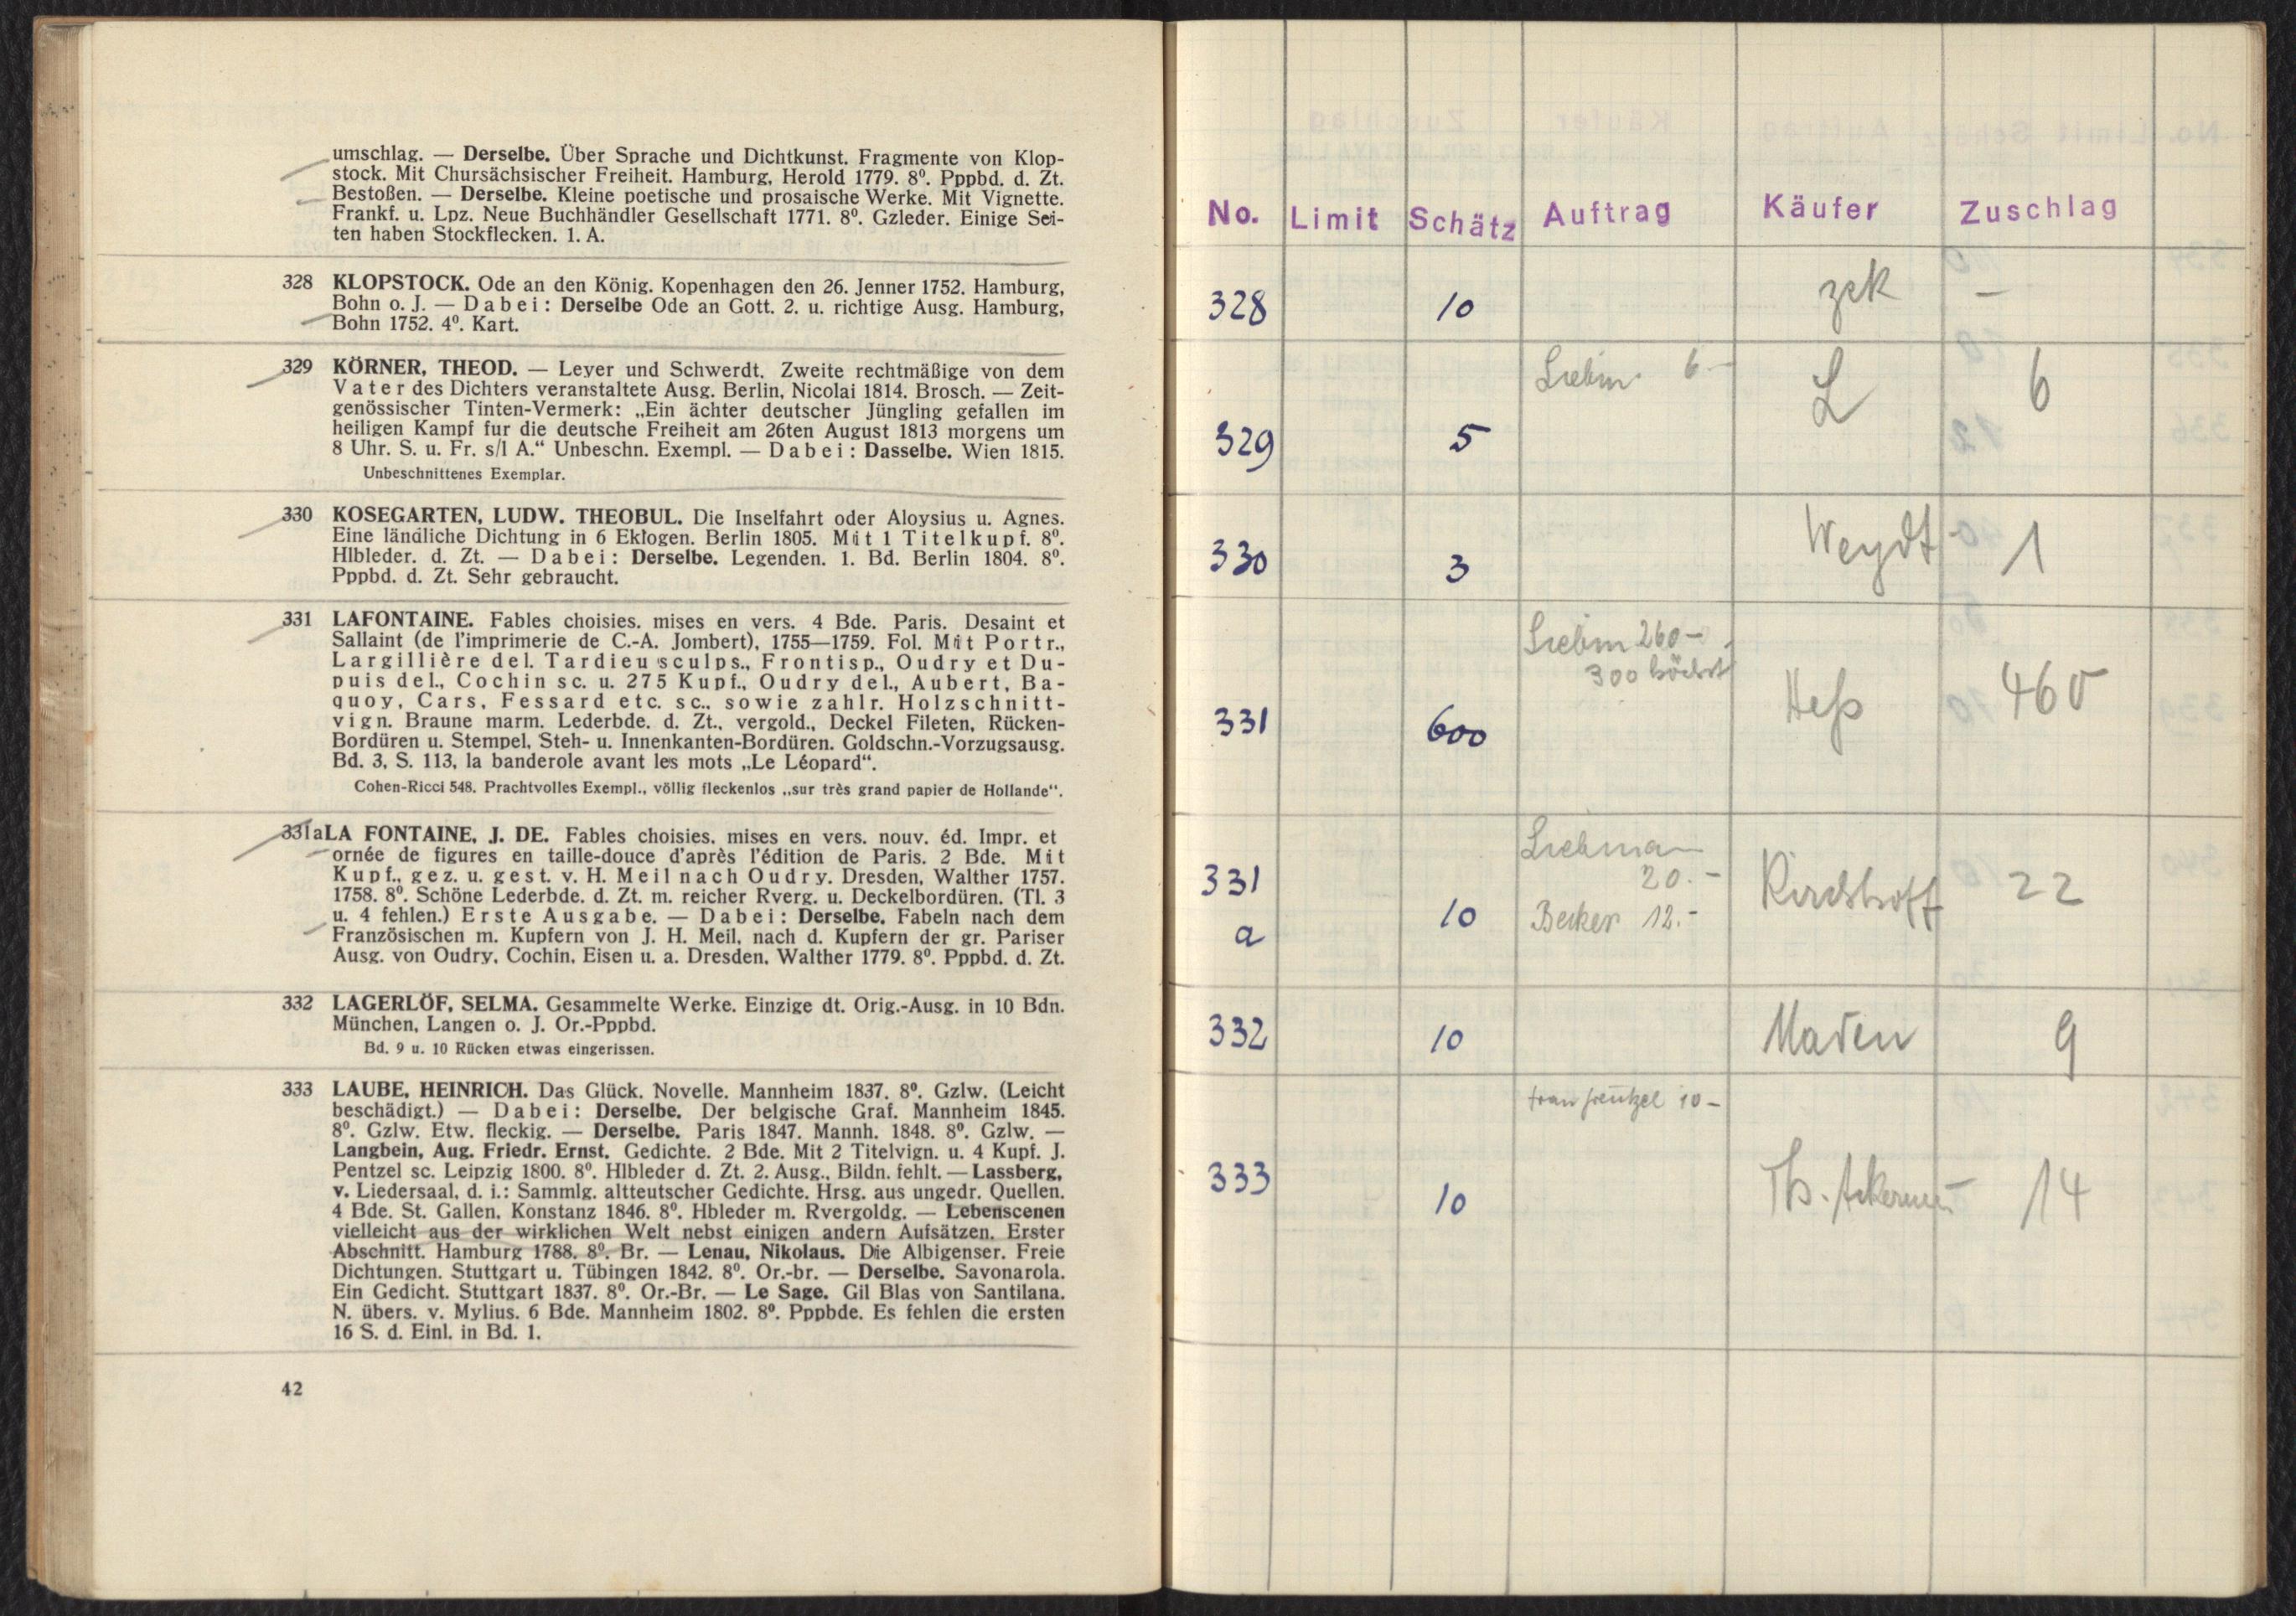 umschlag. — Derselbe. Über Sprache und Dichtkunst. Fragmente von Klop-
stock. Mit Chursächsischer Freiheit. Hamburg, Herold 1779. 8⁰. Pppbd. d. Zt.
Bestoßen. — Derselbe. Kleine poetische und prosaische Werke. Mit Vignette.
Frankf. u. Lpz. Neue Buchhändler Gesellschaft 1771. 8⁰. Gzleder. Einige Sei-
ten haben Stockflecken. 1. A.
328 KLOPSTOCK. Ode an den König. Kopenhagen den 26. Jenner 1752. Hamburg,
Bohn o. J. — Dabei: Derselbe Ode an Gott. 2. u. richtige Ausg. Hamburg,
Bohn 1752. 4⁰. Kart.
329 KÖRNER, THEOD. — Leyer und Schwerdt. Zweite rechtmäßige von dem
Vater des Dichters veranstaltete Ausg. Berlin, Nicolai 1814. Brosch. — Zeit-
genössischer Tinten-Vermerk: „Ein ächter deutscher Jüngling gefallen im
heiligen Kampf fur die deutsche Freiheit am 26ten August 1813 morgens um
8 Uhr. S. u. Fr. s/l A.“ Unbeschn. Exempl. — Dabei: Dasselbe. Wien 1815.
Unbeschnittenes Exemplar.
330 KOSEGARTEN, LUDW. THEOBUL. Die Inselfahrt oder Aloysius u. Agnes.
Eine ländliche Dichtung in 6 Eklogen. Berlin 1805. Mit 1 Titelkupf. 8⁰.
Hlbleder. d. Zt. — Dabei: Derselbe. Legenden. 1. Bd. Berlin 1804. 8⁰.
Pppbd. d. Zt. Sehr gebraucht.
331 LAFONTAINE. Fables choisies. mises en vers. 4 Bde. Paris. Desaint et
Sallaint (de l'imprimerie de C.-A. Jombert), 1755—1759. Fol. Mit Portr.,
Largillière del. Tardieu sculps., Frontisp., Oudry et Du-
puis del., Cochin sc. u. 275 Kupf., Oudry del., Aubert, Ba-
quoy, Cars, Fessard etc. sc., sowie zahlr. Holzschnitt-
vign. Braune marm. Lederbde. d. Zt., vergold., Deckel Fileten, Rücken-
Bordüren u. Stempel, Steh- u. Innenkanten-Bordüren. Goldschn.-Vorzugsausg.
Bd. 3, S. 113, la banderole avant les mots „Le Léopard“.
Cohen-Ricci 548. Prachtvolles Exempl., völlig fleckenlos „sur très grand papier de Hollande“.
331a LA FONTAINE, J. DE. Fables choisies. mises en vers. nouv. éd. Impr. et
ornée de figures en taille-douce d'après l'édition de Paris. 2 Bde. Mit
Kupf., gez. u. gest. v. H. Meil nach Oudry. Dresden, Walther 1757.
1758. 8⁰. Schöne Lederbde. d. Zt. m. reicher Rverg. u. Deckelbordüren. (Tl. 3
u. 4 fehlen.) Erste Ausgabe. — Dabei: Derselbe. Fabeln nach dem
Französischen m. Kupfern von J. H. Meil, nach d. Kupfern der gr. Pariser
Ausg. von Oudry, Cochin, Eisen u. a. Dresden, Walther 1779. 8⁰. Pppbd. d. Zt.
332 LAGERLÖF, SELMA. Gesammelte Werke. Einzige dt. Orig.-Ausg. in 10 Bdn.
München, Langen o. J. Or.-Pppbd.
Bd. 9 u. 10 Rücken etwas eingerissen.
333 LAUBE, HEINRICH. Das Glück. Novelle. Mannheim 1837. 8⁰. Gzlw. (Leicht
beschädigt.) — Dabei: Derselbe. Der belgische Graf. Mannheim 1845.
8⁰. Gzlw. Etw. fleckig. — Derselbe. Paris 1847. Mannh. 1848. 8⁰. Gzlw. —
Langbein, Aug. Friedr. Ernst. Gedichte. 2 Bde. Mit 2 Titelvign. u. 4 Kupf. J.
Pentzel sc. Leipzig 1800. 8⁰. Hlbleder d. Zt. 2. Ausg., Bildn. fehlt. — Lassberg,
v. Liedersaal, d. i.: Sammlg. altteutscher Gedichte. Hrsg. aus ungedr. Quellen.
4 Bde. St. Gallen, Konstanz 1846. 8⁰. Hbleder m. Rvergoldg. — Lebenscenen
vielleicht aus der wirklichen Welt nebst einigen andern Aufsätzen. Erster
Abschnitt. Hamburg 1788. 8⁰. Br. — Lenau, Nikolaus. Die Albigenser. Freie
Dichtungen. Stuttgart u. Tübingen 1842. 8⁰. Or.-br. — Derselbe. Savonarola.
Ein Gedicht. Stuttgart 1837. 8⁰. Or.-Br. — Le Sage. Gil Blas von Santilana.
N. übers. v. Mylius. 6 Bde. Mannheim 1802. 8⁰. Pppbde. Es fehlen die ersten
16 S. d. Einl. in Bd. 1.
42
No. Limit Schätz Auftrag Käufer Zuschlag
328 10 zck —
329 5 Liebm. 6.- L 6
330 3 Weydt 1
331 600 Liebm 260 -
300 höchst Heß 460
331 a 10 Liebman 20.-
Becker 12.- Kirchhoff 22
332 10 Maden 9
333 10 10 - Th. Ackermann 14